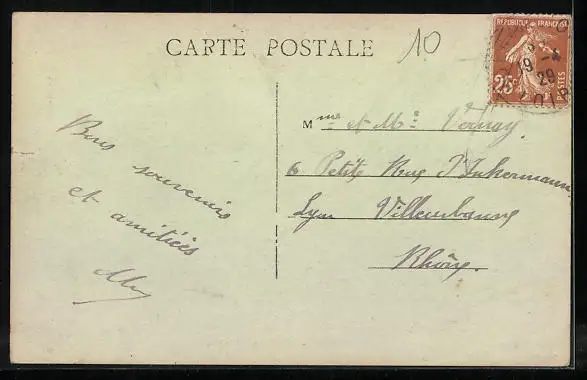 CARTE POSTALE
10
REPUBLIQUE FRANÇAISE
25c
POSTES
19 - 4
29
Mme et Mr Vernay
6 Petite Rue d'Inkermann
Lyon Villeurbanne
Rhône.
Bons souvenirs
et amitiées